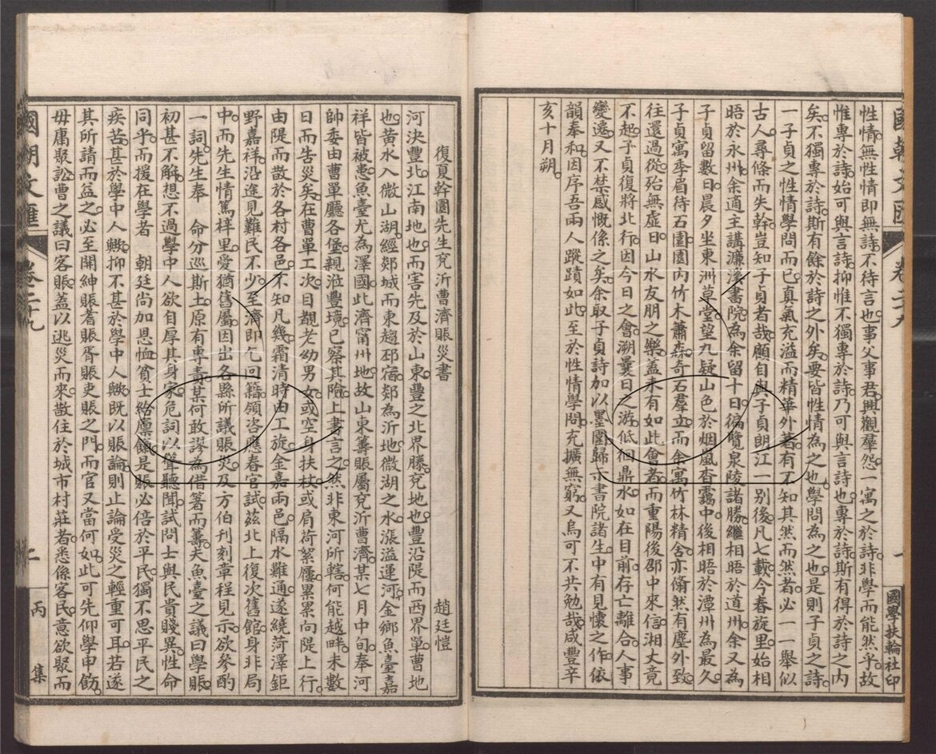 國朝文匯 卷二十九 一 國學扶輪社印
性情無性情即無詩不待言也事父事君興觀羣怨一寓之於詩非學而能然乎故
惟專於詩始可與言詩抑惟不獨專於詩乃可與言詩也專於詩斯有得於詩之內
矣不獨專於詩斯有餘於詩之外矣要皆性情為之也學問為之也是則子貞之詩
一子貞之性情學問而已真氣充溢而精華外著有不知其然而然者必一一舉似
古人尋條而失幹豈知子貞者哉顧自與子貞朗江一別後凡七載今春旋里始相
晤於永州余適主講濂溪書院為余留十日徧覽泉陵諸勝繼相晤於道州余又為
子貞留數日晨夕坐東洲草堂望九疑山色於烟嵐杳靄中後相晤於潭州為最久
子貞寓李眉待石園園內竹木蕭森奇石羣立而余寓竹林精舍亦翛然有塵外致
往還過從殆無虛日山水友朋之樂蓋未有如此會者而重陽後邵中來信湘大竟
不起子貞復將北行因今日之會溯曩日之游低徊鼎水如在目前存亡離合人事
變遷又不禁感慨係之矣余取子貞詩加以墨圍歸示書院諸生中有見懷之作依
韻奉和因序吾兩人蹤蹟如此至於性情學問充擴無窮又烏可不共勉哉咸豐辛
亥十月朔
復夏幹園先生兗沂曹濟賑災書 趙廷愷
河決豐北江南地也而害先及於山東豐之北界滕兗地也豐沿隄而西界單曹地
也黃水入微山湖經郯城而東趨邳宿郯為沂地微湖之水漲溢運河金鄉魚臺嘉
祥皆被患魚臺尤為澤國此濟甯州地故山東籌賑屬兗沂曹濟某七月中旬奉河
帥委由曹單廳各堡親涖豐境已察其險上書言之然非東河所轄何能越畔未數
日而告災矣在曹單工次目覩老幼男女或空身扶杖或肩荷絮縢累累向隄上行
由隄而散於各村各邑不知凡幾霜清時由工旋金嘉兩邑隔水難通遂繞菏澤鉅
野嘉祥沿途見難民不少至濟即乞回籍領咨應春官試茲北上復次舊館身非局
中而先生情篤梓里愛猶舊屬因出各縣所議賑災及方伯刊刻章程見示欲參酌
一詞先生奉 命分巡斯土原有專責某何敢謬為借箸而籌夫魚臺之議曰學賑
初甚不解想不過學中人欲自厚其身家危詞以聳聽聞試問士與民貴賤異性命
同乎而援在學者 朝廷尚加恩恤貧士給廩餼是賑必倍於平民獨不思平民之
疾苦甚於學中人歟抑不甚於學中人歟既以賑論則止論受災之輕重可耳若遂
其所請而益之必至開紳賑耆賑胥賑吏賑之門而官又當何如此可先仰學申飭
毋庸聚訟曹之議曰客賑蓋以逃災而來散住於城市村莊者悉係客民意欲聚而
國朝文匯 卷二十九 二 丙集